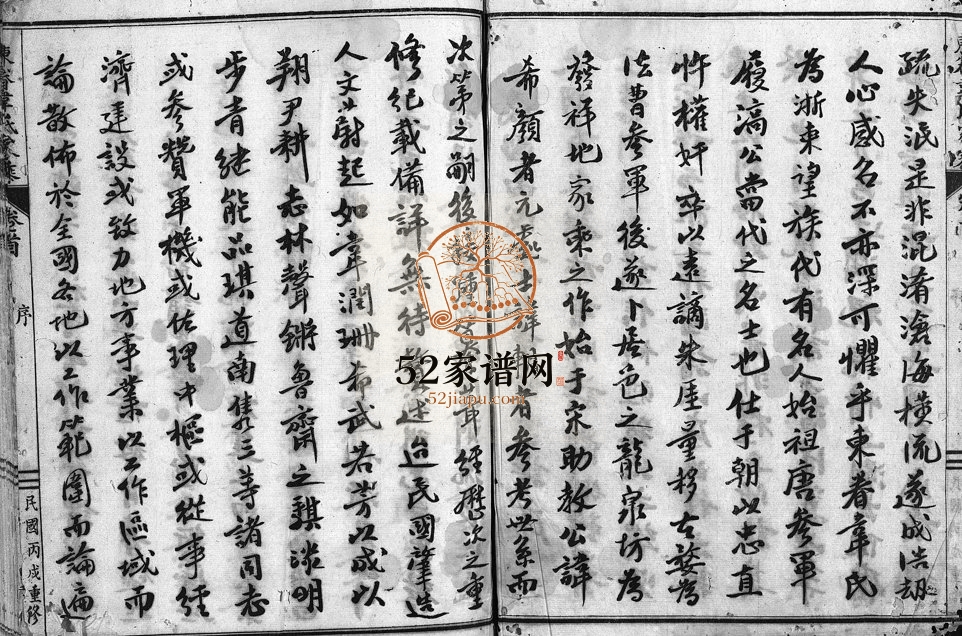 疏失泯是非混淆滄海橫流遂成浩劫
人心感名不亦深可懼乎東眷韋氏
為浙東望族代有名人始祖唐參軍
履滈公當代之名士也仕于朝以忠直
忤權奸卒以遠謫朱厓量移古婺為
法曹參軍後遂卜居邑之龍泉坊為
發祥地家乘之作始于宋助教公諱
希顏者元處士諱者參考世系而
次第之嗣後經歷次之重
修紀載備詳無待述迨民國肇造
人文蔚起如韋潤珊希武若芳以成以
翔尹耕志林聲鏘魯齋之騏淡明
步青繼能品琪道南雋三等諸同志
或參贊軍機或佐理中樞或從事經
濟建設或致力地方事業以工作區域而
論散佈於全國各地以工作範圍而論遍
東眷韋氏家乘
卷首
序
民國丙戌重修
52家谱网
52jiapu.com